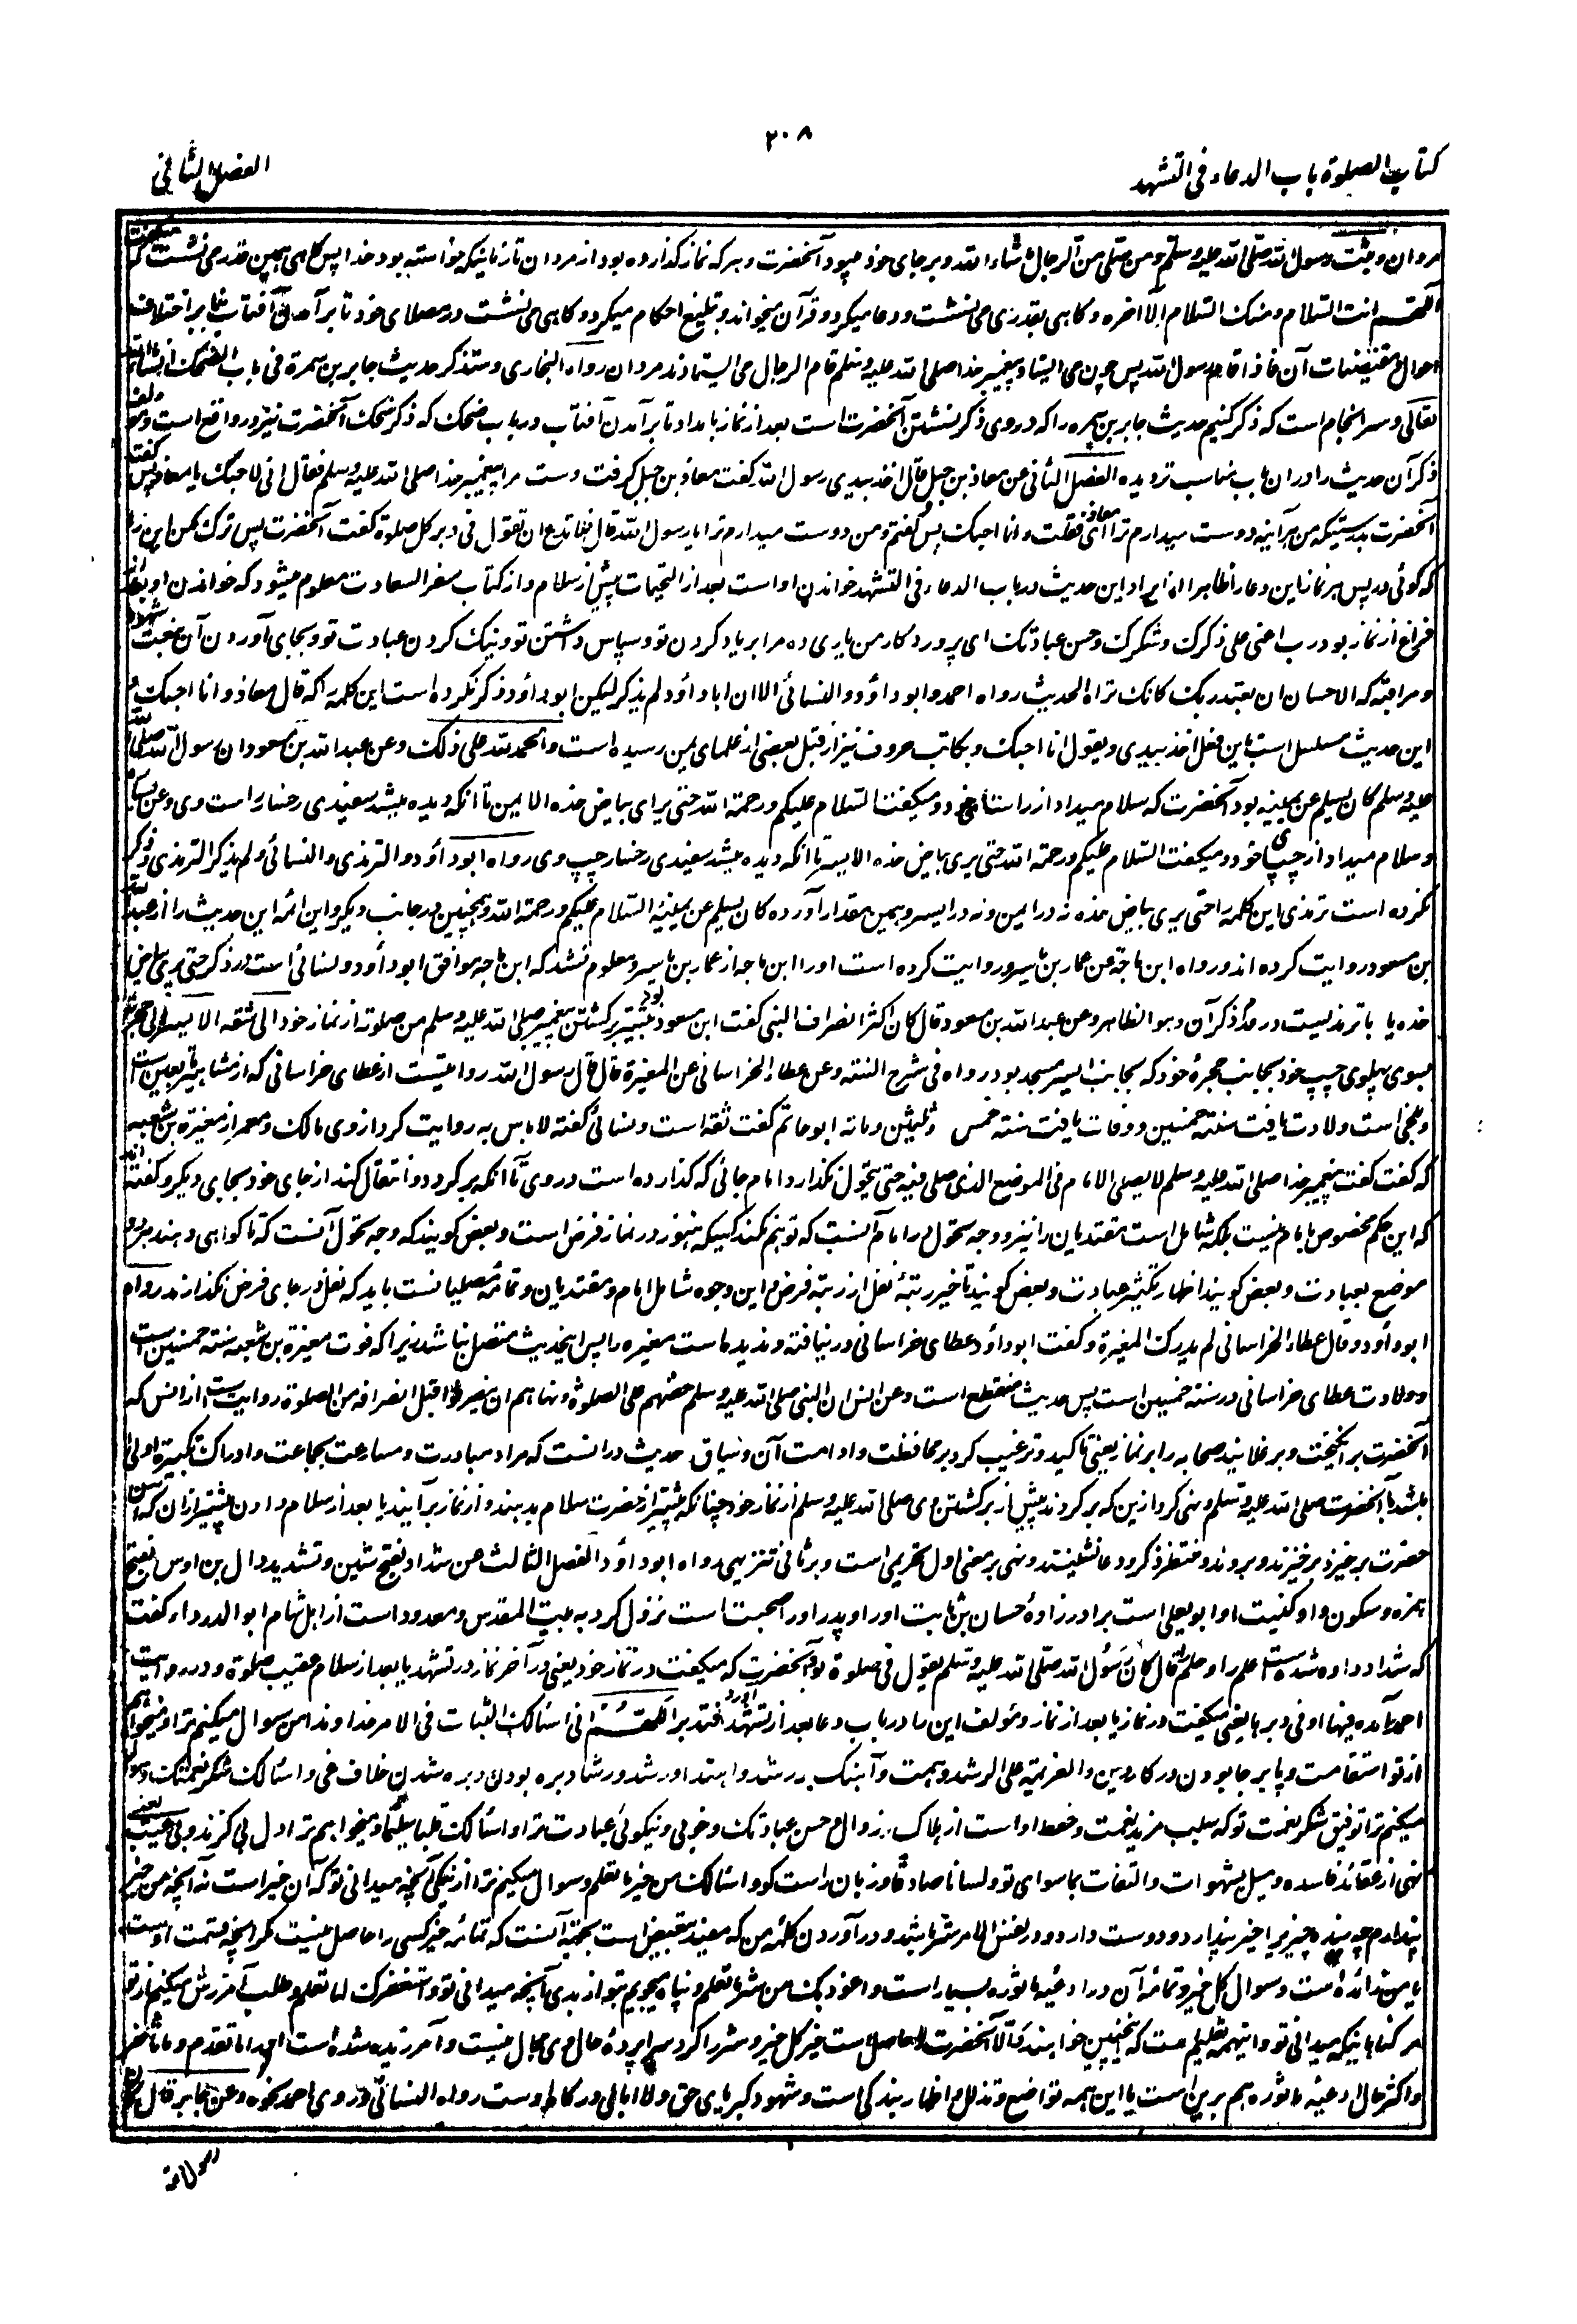 ۲۰۸
کتاب الصلوة باب الدعاء فی التشهد
الفصل الثانی
مردان وثبت رسول الله صلی الله علیه وسلم ومن صلی من الرجال ما شاء الله وبر جای خود میبود آنحضرت وهر که نماز گذارده بود از مردان تا زمانیکه خواسته بود خدا پس گاهی همین قدر می نشست که میگفت
اللهم انت السلام ومنک السلام الا آخره وگاهی بقدری می نشست ودعا میکرد وقرآن میخواند وتبلیغ احکام میکرد وگاهی می نشست در مصلای خود تا برآمدن آفتاب بنا بر اختلاف
احوال ومقتضیات آن فاذا قام رسول الله پس چون می ایستاد پیغمبر خدا صلی الله علیه وسلم قام الرجال می ایستادند مردان رواه البخاری وسنذکر حدیث جابر بن سمرة فی باب الضحک انشاء الله
تعالی وسر انجام است که ذکر کنیم حدیث جابر بن سمره را که در وی ذکر نشستن آنحضرت است بعد از نماز بامداد تا برآمدن آفتاب در باب ضحک که ذکر ضحک آنحضرت نیز درو واقع است ومؤلف
ذکر آن حدیث را در ان باب مناسب تر دیده الفصل الثانی عن معاذ بن جبل قال اخذ بیدی رسول الله گفت معاذ بن جبل گرفت دست مرا پیغمبر خدا صلی الله علیه وسلم فقال انی لاحبک یا معاذ پس گفت
آنحضرت بدرستیکه من هر آینه دوست میدارم ترا ای معاذ فقلت وانا احبک پس گفتم ومن دوست میدارم ترا یا رسول الله قال فلا تدع ان تقول فی دبر کل صلوة گفت آنحضرت پس ترک مکن این را
که گوئی در پس هر نماز این دعا را ظاهر از ایراد این حدیث در باب الدعاء فی التشهد خواندن او است بعد از التحیات پیش از سلام واز کتاب سفر السعادت معلوم میشود که خواندن او بعد از
فراغ از نماز بود رب اعنی علی ذکرک وشکرک وحسن عبادتک ای پروردگار من یاری ده مرا بر یاد کردن تو وسپاس داشتن تو ونیک کردن عبادت تو وبجای آوردن آن بنعت شهود
ومراقبه که الاحسان ان تعبد ربک کانک تراه الحدیث رواه احمد وابو داؤد والنسائی الا ان ابا داؤد لم یذکر لیکن ابو داؤد ذکر نکرده است این کلمه را که قال معاذ وانا احبک و
این حدیث مسلسل است باین فعل اخذ بیدی ویقول انا احبک وبکاتب حروف نیز از قبل بعضی از علمای یمن رسیده است والحمد لله علی ذلک وعن عبد الله بن مسعود ان رسول الله صلی الله
علیه وسلم کان یسلم عن یمینه بود آنحضرت که سلام میداد از راستای خود ومیگفت السلام علیکم ورحمة الله حتی یری بیاض خده الایمن تا آنکه دیده میشد سفیدی رخساره راست وی وعن یساره
وسلام میداد از چپ خود ومیگفت السلام علیکم ورحمة الله حتی یری بیاض خده الایسر تا آنکه دیده میشد سفیدی رخسار چپ وی رواه ابو داؤد والترمذی والنسائی ولم یذکر الترمذی وذکر
نکرده است ترمذی این کلمه را حتی یری بیاض خده نه در ایمن ونه در ایسر وهمین مقدار آورده کان یسلم عن یمینه السلام علیکم ورحمة الله وهمچنین در جانب دیگر واین ائمه این حدیث را از عبد الله
بن مسعود روایت کرده اند ورواه ابن ماجة عن عمار بن یاسر وروایت کرده است او را ابن ماجه از عمار بن یاسر ومعلوم نشد که ابن ماجه موافق ابو داؤد ونسائی است در ذکر حتی یری بیاض
خده یا با ترمذیست در عدم ذکر آن وهو الظاهر وعن عبد الله بن مسعود قال کان اکثر انصراف النبی گفت ابن مسعود بود بیشتر برگشتن پیغمبر صلی الله علیه وسلم من صلوته از نماز خود الی شقه الایسر الی حجرته
بسوی پهلوی چپ خود بجانب حجرۀ خود که بجانب ایسر مسجد بود رواه فی شرح السنة وعن عطاء الخراسانی عن المغیرة قال قال رسول الله روایتست از عطای خراسانی که از مشاهیر تابعین است
وبلخی است ولادت یافت سنه خمسین ووفات یافت سنه خمس وثلثین ومائة ابو حاتم گفت ثقه است ونسائی گفته لا باس به روایت کرد از وی مالک ومعمر از مغیرة بن شعبه
که گفت گفت پیغمبر خدا صلی الله علیه وسلم لا یصلی الامام فی الموضع الذی صلی فیه حتی یتحول نگذارد امام جائی که گذارده است در وی تا آنکه برگردد وانتقال کند از جای خود بجای دیگر وگفته اند
که این حکم مخصوص بامام نیست بلکه شامل است مقتدیان را نیز ووجه تحول در امام آنست که توهم نکند کسیکه هنوز در نماز فرض است وبعض گویند که وجه تحول آنست که تا گواهی دهند هر دو
موضع بعبادت وبعض گویند اظهار تکثیر عبادت وبعض گویند تاخیر رتبۀ نفل از رتبه فرض واین وجوه شامل امام ومقتدیان وتمامه مصلیانست باید که نفل در جای فرض نگذارند رواه
ابو داؤد وقال عطاء الخراسانی لم یدرک المغیرة وگفت ابو داؤد عطای خراسانی در نیافته وندیده است مغیره را پس این حدیث متصل نباشد زیرا که فوت مغیرة بن شعبه سنه خمسین است
وولادت عطای خراسانی در سنه خمسین است پس حدیث منقطع است وعن انس ان النبی صلی الله علیه وسلم حضهم علی الصلوة ونهاهم ان ینصرفوا قبل انصرافه من الصلوة روایت است از انس که
آنحضرت برانگیخت وبرغلانید صحابه را بر نماز یعنی تاکید وترغیب کرد بر محافظت وادامت آن وسیاق حدیث در انست که مراد مبادرت ومسارعت بجماعت وادراک تکبیرۀ اولی
باشد با آنحضرت صلی الله علیه وسلم ونهی کرد ازین که برگردند پیش از برگشتن وی صلی الله علیه وسلم از نماز خود چنانکه پیشتر از حضرت سلام بدهند واز نماز برآیند یا بعد از سلام دادن پیشتر ازان که آن
حضرت برخیزد برخیزند وبروند ومنتظر ذکر ودعا ننشینند ونهی بر معنی اول تحریمی است وبر ثانی تنزیهی رواه ابو داؤد الفصل الثالث عن شداد بفتح شین وتشدید دال بن اوس بفتح
همزه وسکون واو کنیت او ابو یعلی است برادر زادۀ حسان بن ثابت او را وپدر او را صحبت است نزول کرد به بیت المقدس ومعدود است از اهل شام ابو الدرداء گفت
که شداد داده شده است علم را وحلم را قال کان رسول الله صلی الله علیه وسلم یقول فی صلوة بود آنحضرت که میگفت در نماز خود یعنی در آخر نماز در تشهد یا بعد از سلام عقیب صلوة ودر روایت
احمد آمده فیها او فی دبرها یعنی میگفت در نماز یا بعد از نماز ومؤلف این را در باب دعا بعد از تشهد آورد فتدبر اللهم انی اسئالک الثبات فی الامر خداوندا من سوال میکنم ترا ومیخواهم
از تو استقامت وپا بر جا بودن در کار دین والعزیمة علی الرشد وهمت وآهنگ بر رشد واهتدا ورشد ورشاد بره بودن وبره شدن خلاف غی واسئالک شکر نعمتک وسوال
میکنم ترا توفیق شکر نعمت تو که سبب مزید نعمت وحفظ او است از هلاک وزوال وحسن عبادتک وخوبی ونیکوئی عبادت ترا واسئالک قلبا سلیما ومیخواهم ترا دل بی گزند وبی عیب یعنی
تهی از عقائد فاسده ومیل بشهوات والتفات بما سوای تو ولسانا صادقا وزبان راست گو واسئالک من خیر ما تعلم وسوال میکنم ترا از نیکی آنچه میدانی تو که آن خیر است نه آنچه من خیر
پندارم چه بنده چیزیرا خیر پندارد ودوست دارد ودر نفس الامر شر باشد ودر آوردن کلمۀ من که مفید تبعیض است بجهة آنست که تمامه خیر کسی را حاصل نیست مگر آنچه قسمت او است
یا من زائده است وسوال کل خیر وتمامۀ آن در ادعیه ماثوره بسیار است واعوذ بک من شر ما تعلم وپناه میجویم بتو از بدی آنچه میدانی تو واستغفرک لما تعلم وطلب آمرزش میکنم از تو
هر گناهانیکه میدانی تو واینهمه تعلیم است که همچنین خوانند والا آنحضرت را حاصل است خیر کل خیر وشر را گرد سراپردۀ حال وی مجال نیست وآمرزیده شده است او را ما تقدم وما تاخر
واکثر حال ادعیۀ ماثوره هم برین است یا این همه تواضع وتذلل واظهار بندگی است وشهود کبریای حق ولا ابالی درگاه اوست رواه النسائی وروی احمد نحوه وعن جابر قال کان
رسول الله